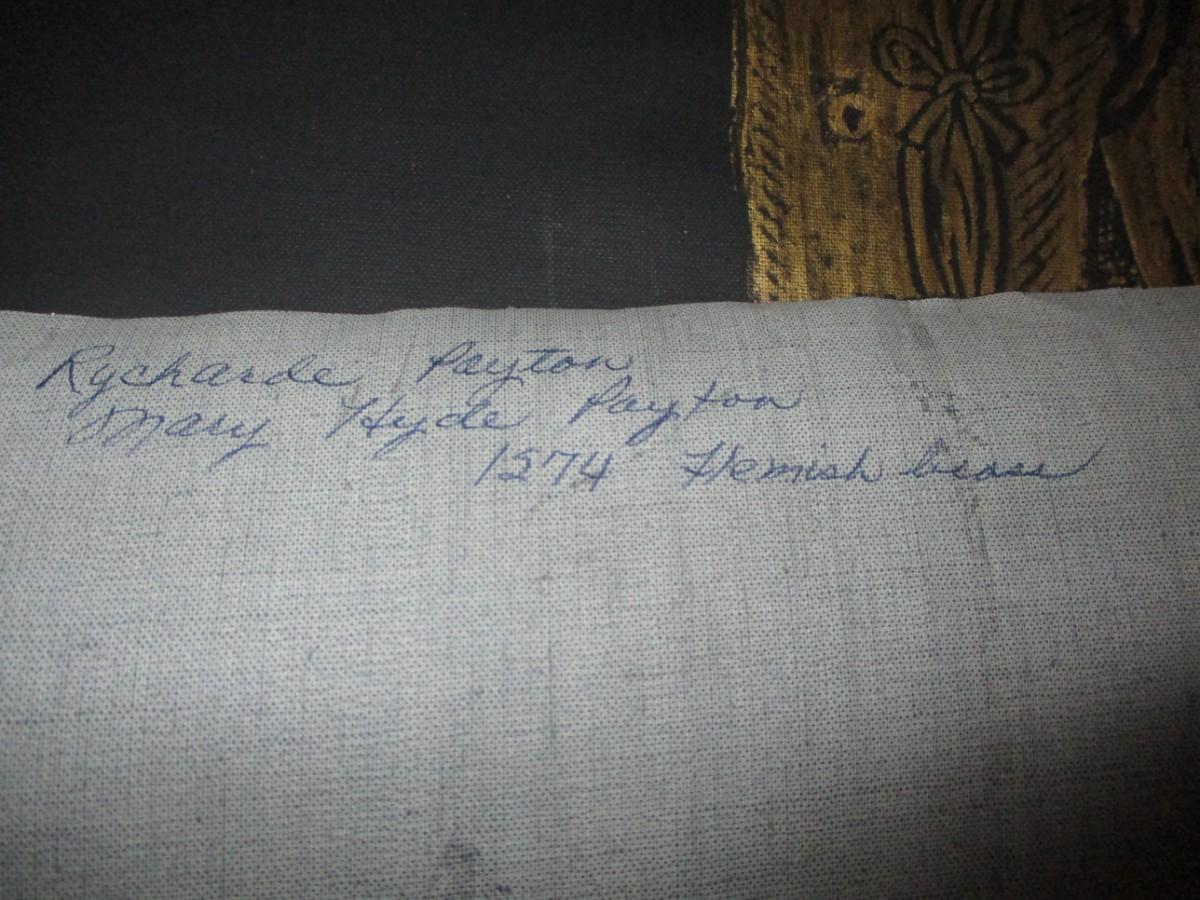 Rycharde Payton
Mary Hyde Payton
1574 Flemish brass